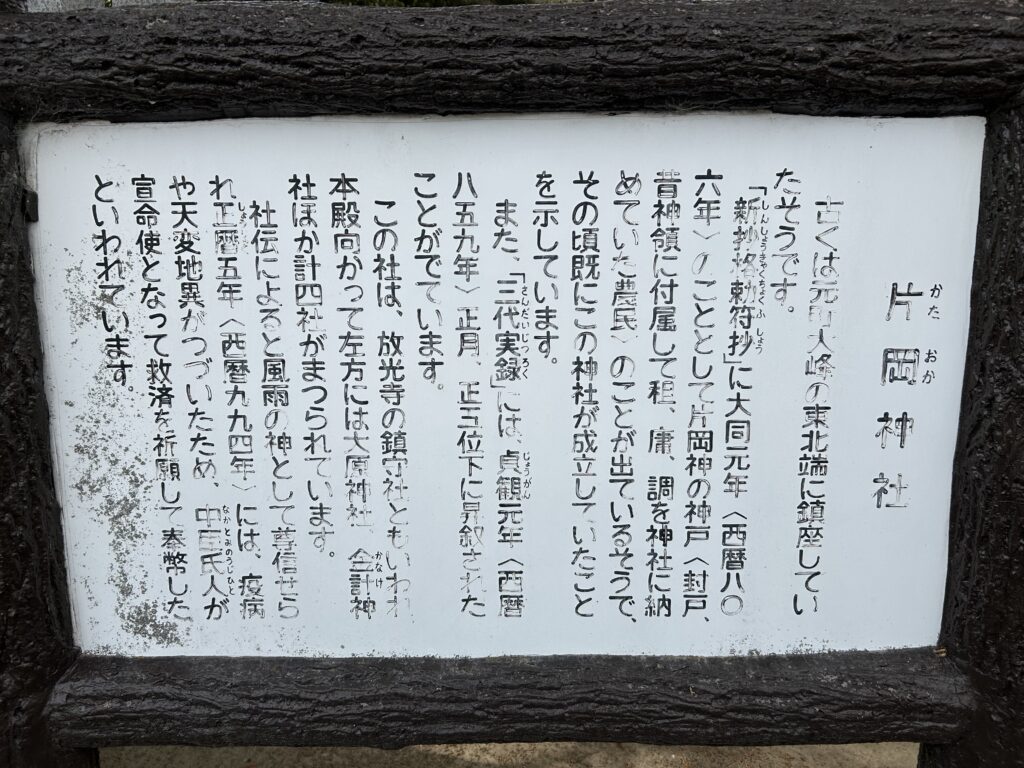 片岡神社
かた おか
古くは元町大峰の東北端に鎮座してい
たそうです。
「新抄格勅符抄」に大同元年〈西暦八〇
しんしょうきゃくちょくふしょう
六年〉のこととして片岡神の神戸〈封戸、
昔神領に付属して租、庸、調を神社に納
めていた農民〉のことが出ているそうで、
その頃既にこの神社が成立していたこと
を示しています。
また、「三代実録」には、貞観元年〈西暦
さんだいじつろく じょうがん
八五九年〉正月、正五位下に昇叙された
ことがでています。
この社は、放光寺の鎮守社ともいわれ
本殿向かって左方には大原神社 金計神
かなけ
社ほか計四社がまつられています。
社伝によると風雨の神として尊信せら
れ正暦五年〈西暦九九四年〉には、疫病
しょう
や天変地異がつづいたため、中臣氏人が
なかとみのうじひと
宣命使となって救済を祈願して奉幣した
といわれています。